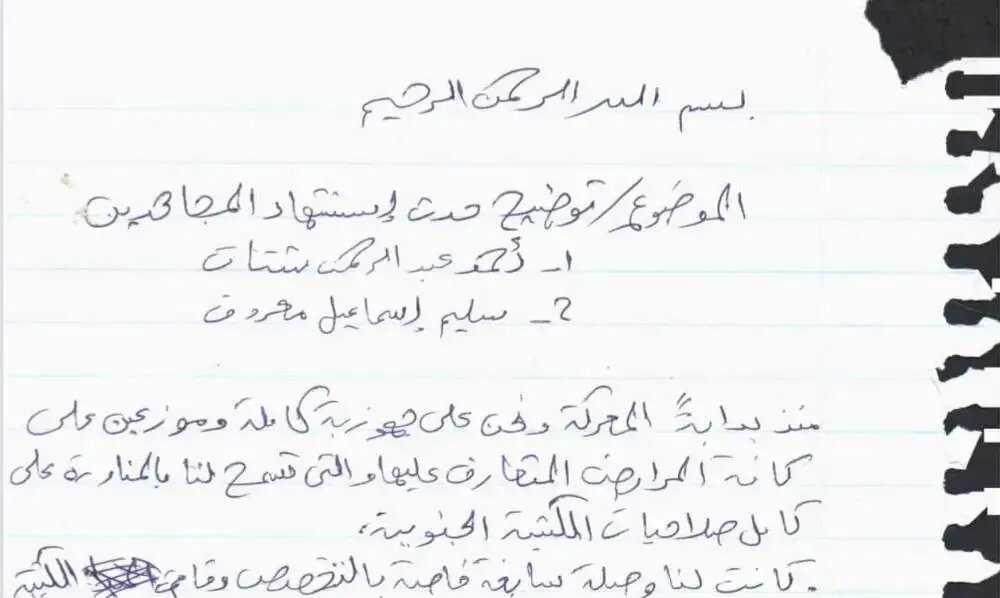 بسم الله الرحمن الرحيم
الموضوع/توضيح حدث إستشهاد المجاهدين
1_ أحمد عبد الرحمن شتات
2_ سليم إسماعيل معروف
منذ بداية المعركة ونحن على جهوزية كاملة وموزعين على
كافة المرابض المتعارف عليها والتي تسمح لنا بالمناورة على
كامل صلاحيات الكتيبة الجنوبية،
. كانت لنا وصلة سابقة خاصة بالتخصص وقامت الكتيبة